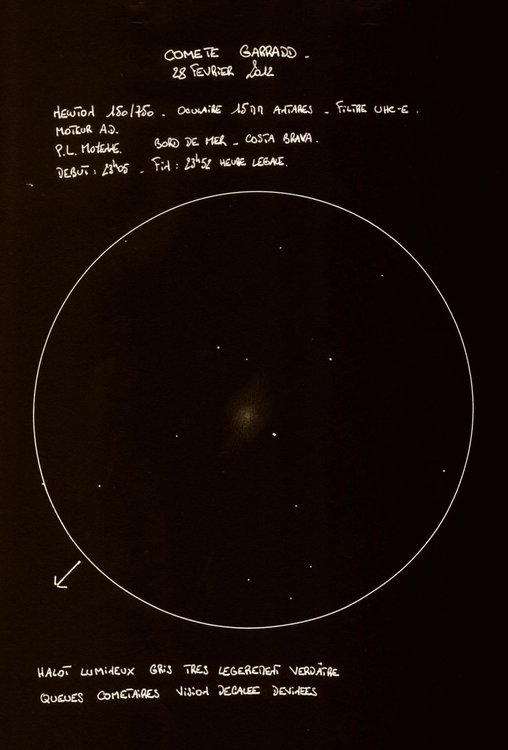 COMETE GARRADD.
28 FEVRIER 2012
NEWTON 150/750. OCULAIRE 15mm ANTARES. FILTRE UHC-E.
MOTEUR AD.
P.L. MOYENNE. BORD DE MER. COSTA BRAVA.
DEBUT : 23h05. FIN : 23h52 HEURE LEGALE.
HALOT LUMINEUX GRIS TRES LEGEREMENT VERDÂTRE
QUEUES COMETAIRES VISION DECALEE DEVINEES